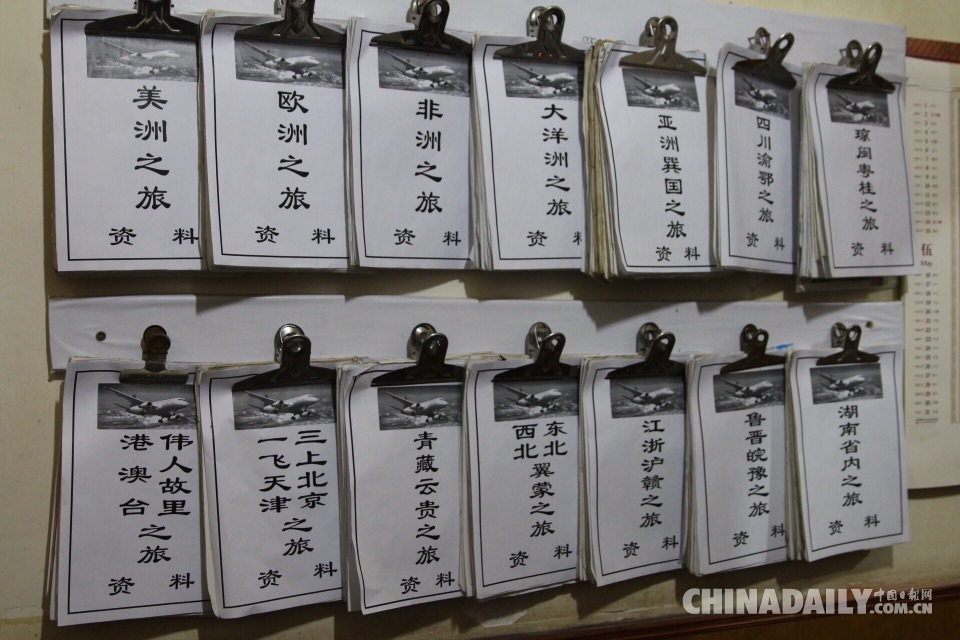 美洲之旅
资料
欧洲之旅
资料
非洲之旅
资料
大洋洲之旅
资料
亚洲巽国之旅
资料
四川渝鄂之旅
资料
琼闽粤桂之旅
资料
伍
May
伟人故里
港澳台之旅
资料
三上北京
一飞天津之旅
资料
青藏云贵之旅
资料
东北
西北翼蒙之旅
资料
江浙沪赣之旅
资料
鲁晋皖豫之旅
资料
湖南省内之旅
资料
CHINADAILY
中国日报网
.COM.CN